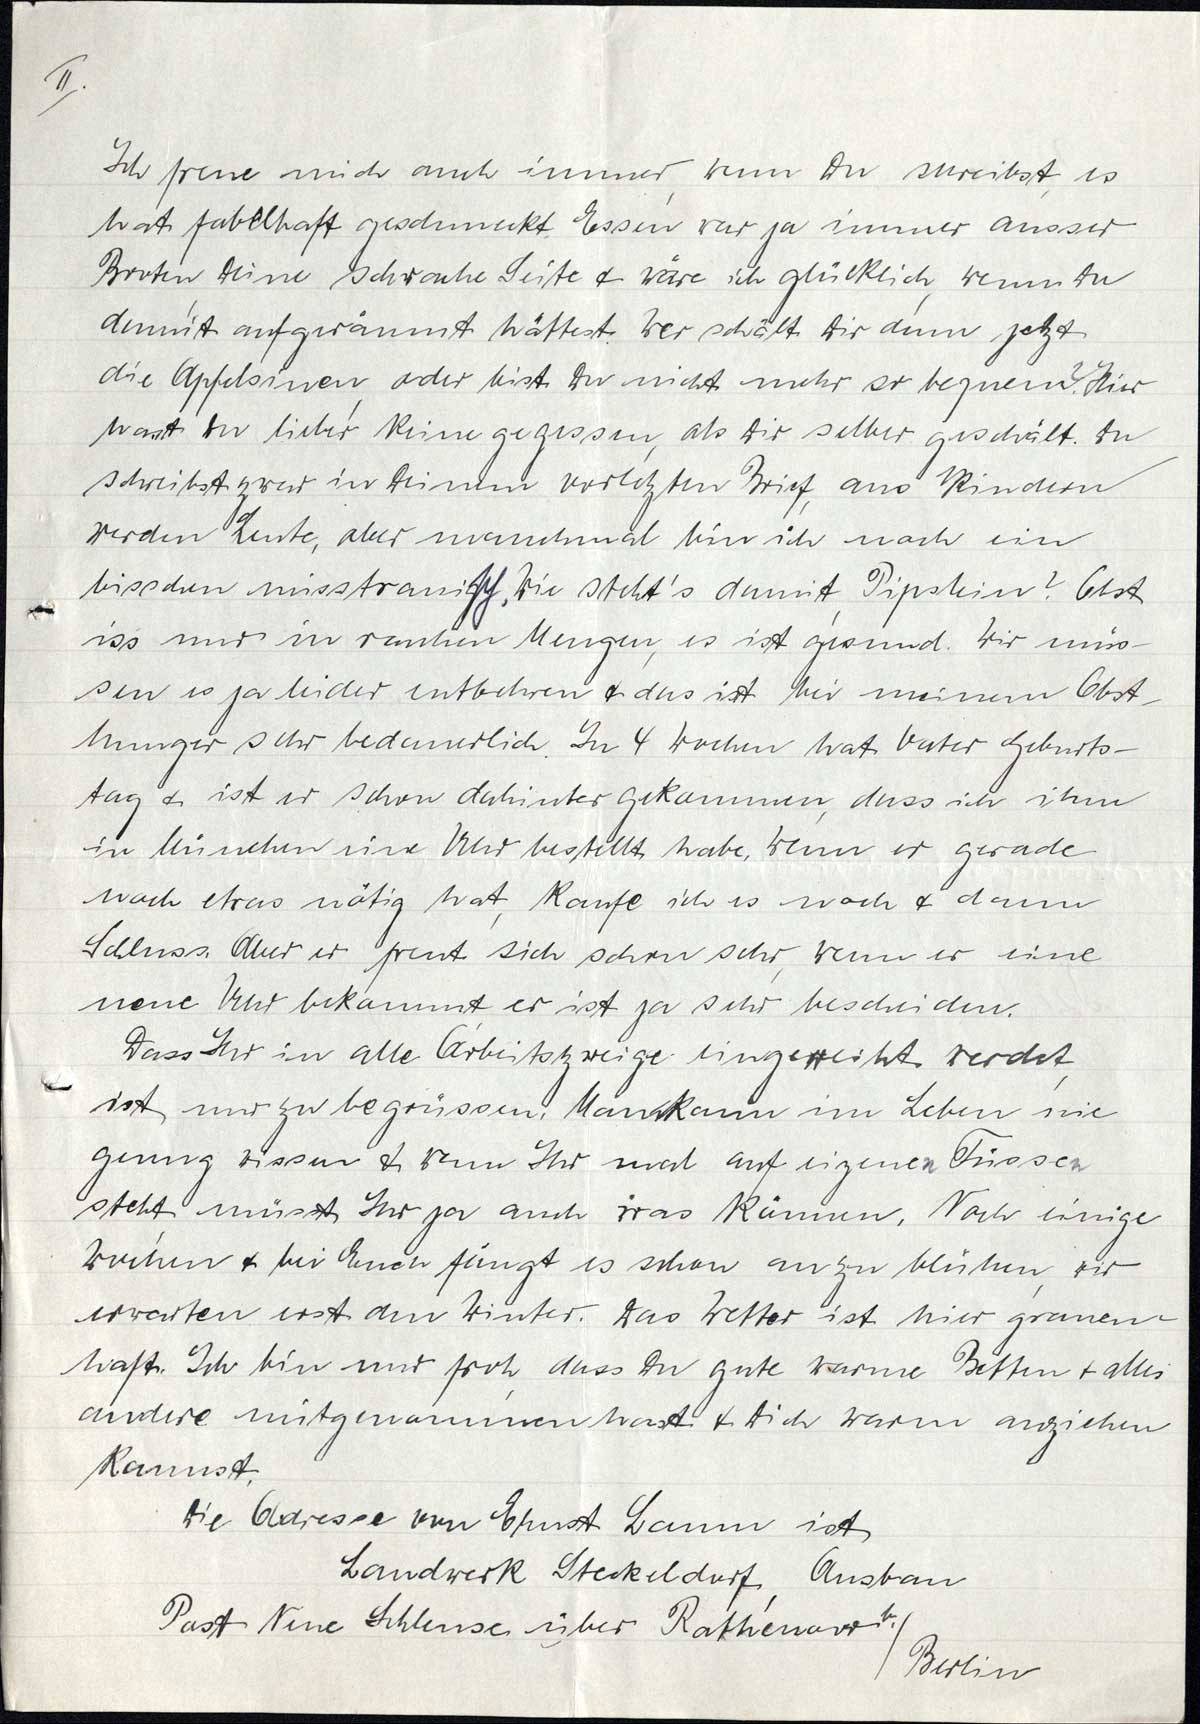 II.
Ich freue mich auch immer, wenn Du schreibst, es
hat fabelhaft geschmeckt. Essen war ja immer ausser
Broten Deine schwache Seite & wäre ich glücklich, wenn Du
damit aufgeräumt hättest. Wer schält Dir denn jetzt
die Apfelsinen, oder bist Du nicht mehr so bequem? Hier
hast Du lieber keine gegessen, als Dir selber geschält. Du
schreibst zwar in Deinem vorletzten Brief, aus Kindern
werden Leute, aber manchmal bin ich noch ein
bisschen misstrauisch. Wie steht's damit, Pipslein? Obst
iss nur in rauhen Mengen, es ist gesund. Wir müs-
sen es ja leider entbehren & das ist bei meinem Obst-
hunger sehr bedauerlich. In 4 Wochen hat Vater Geburts-
tag & ist er schon dahinter gekommen, dass ich ihm
in München eine Uhr bestellt habe. Wenn er gerade
noch etwas nötig hat, kaufe ich es noch & dann
Schluss. Aber er freut sich schon sehr, wenn er eine
neue Uhr bekommt er ist ja sehr bescheiden.
Dass Ihr in alle Arbeitszweige eingeweiht werdet,
ist nur zu begrüssen. Man kann im Leben nie
genug wissen & wenn Ihr mal auf eigenen Füssen
steht, müsst Ihr ja auch was können. Noch einige
Wochen & bei Euch fängt es schon an zu blühen, wir
erwarten erst den Winter. Das Wetter ist hier grauen-
haft. Ich bin nur froh, dass Du gute warme Betten & alles
andere mitgenommen hast & Dich warm anziehen
kannst.
Die Adresse von Ernst Lamm ist
Landwerk Steckelsdorf, Ausbau
Post Neue Schleuse über Rathenow b./
Berlin